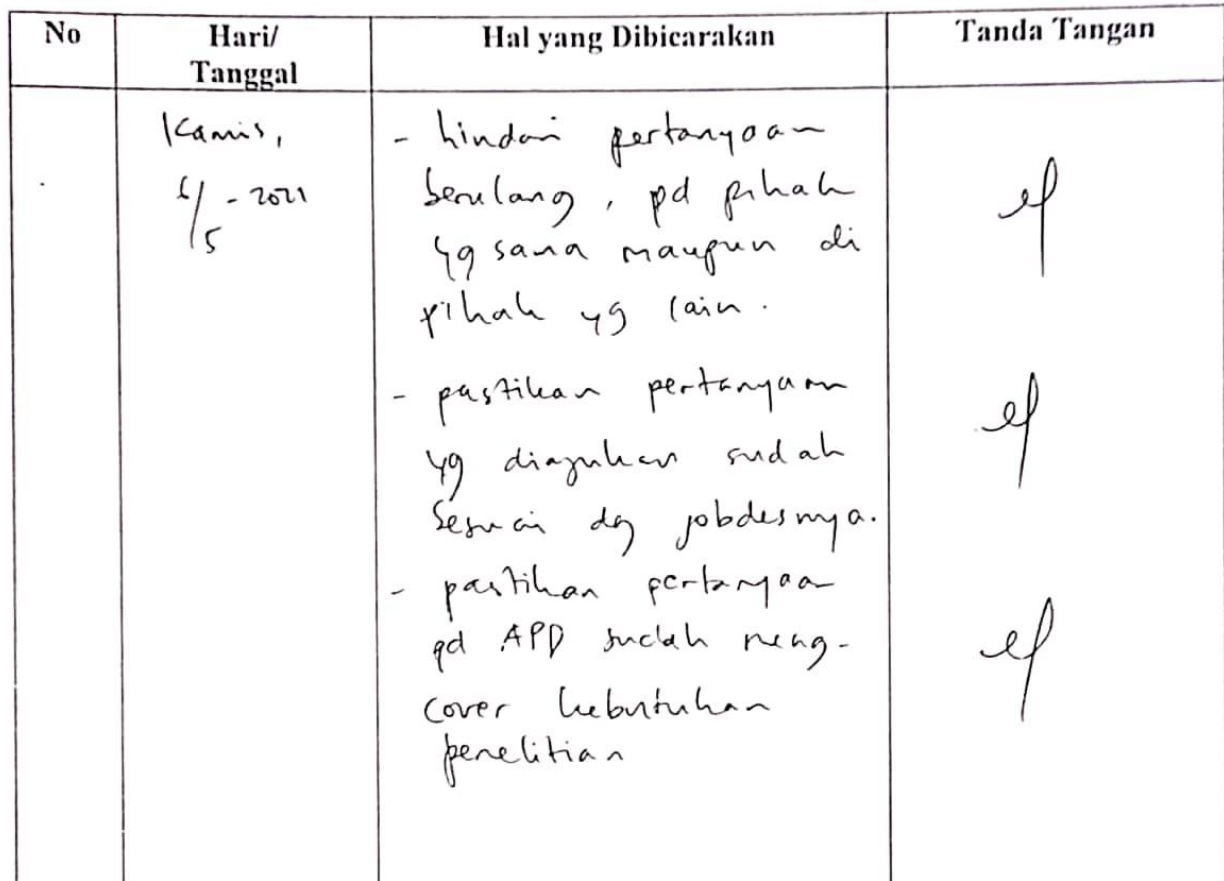 No
Hari/
Tanggal
Hal yang Dibicarakan
Tanda Tangan
Kamis,
6/5 - 2021
- hindari pertanyaan
berulang, pd pihak
yg sama maupun di
pihak yg lain.
- pastikan pertanyaan
yg diajukan sudah
sesuai dg jobdesnya.
- pastikan pertanyaan
pd APD sudah meng-
cover kebutuhan
penelitian